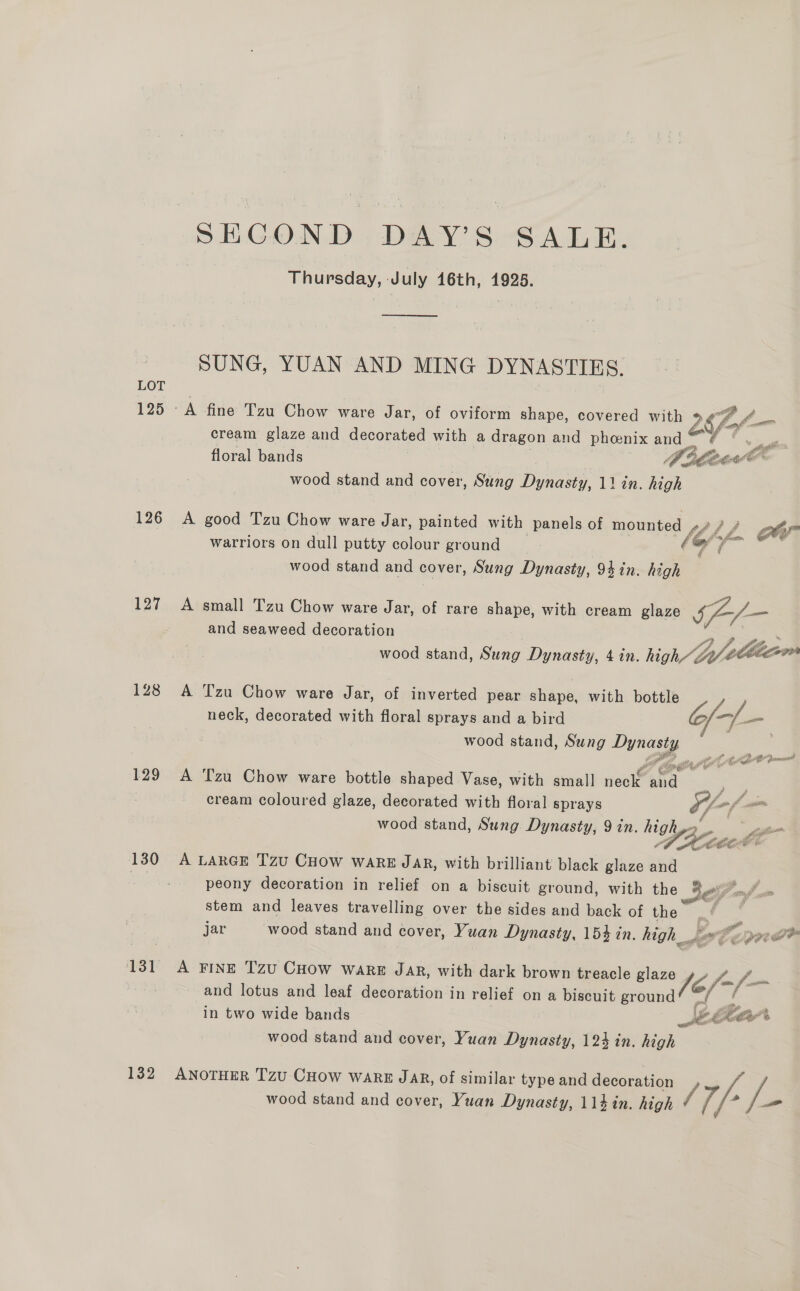 SECOND DAY'S SALE.
Thursday, July 16th, 1925.
SUNG, YUAN AND MING DYNASTIES.
LOT
125 A fine Tzu Chow ware Jar, of oviform shape, covered with
cream glaze and decorated with a dragon and phœnix and
floral bands
wood stand and cover, Sung Dynasty, 11 in. high
126 A good Tzu Chow ware Jar, painted with panels of mounted
warriors on dull putty colour ground
wood stand and cover, Sung Dynasty, 9½ in. high
127 A small Tzu Chow ware Jar, of rare shape, with cream glaze
and seaweed decoration
wood stand, Sung Dynasty, 4 in. high
128 A Tzu Chow ware Jar, of inverted pear shape, with bottle
neck, decorated with floral sprays and a bird 6/-/-
wood stand, Sung Dynasty
129 A Tzu Chow ware bottle shaped Vase, with small neck and
cream coloured glaze, decorated with floral sprays
wood stand, Sung Dynasty, 9 in. high
130 A LARGE TZU CHOW WARE JAR, with brilliant black glaze and
peony decoration in relief on a biscuit ground, with the
stem and leaves travelling over the sides and back of the
jar wood stand and cover, Yuan Dynasty, 15½ in. high
131 A FINE TZU CHOW WARE JAR, with dark brown treacle glaze
and lotus and leaf decoration in relief on a biscuit ground
in two wide bands
wood stand and cover, Yuan Dynasty, 12½ in. high
132 ANOTHER TZU CHOW WARE JAR, of similar type and decoration
wood stand and cover, Yuan Dynasty, 11½ in. high 17/-/-